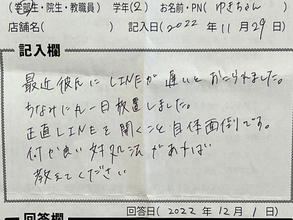 (学部生・院生・教職員) 学年(2) お名前・PN(ゆきちゃん)
店舗名( ) 記入日(2022年11月29日)
記入欄
最近彼氏にLINEが遅いとおこられました。
ちなみに丸一日放置しました。
正直LINEを開くこと自体面倒です。
何か良い対処法があれば
教えてください
回答日(2022年12月1日)
回答欄